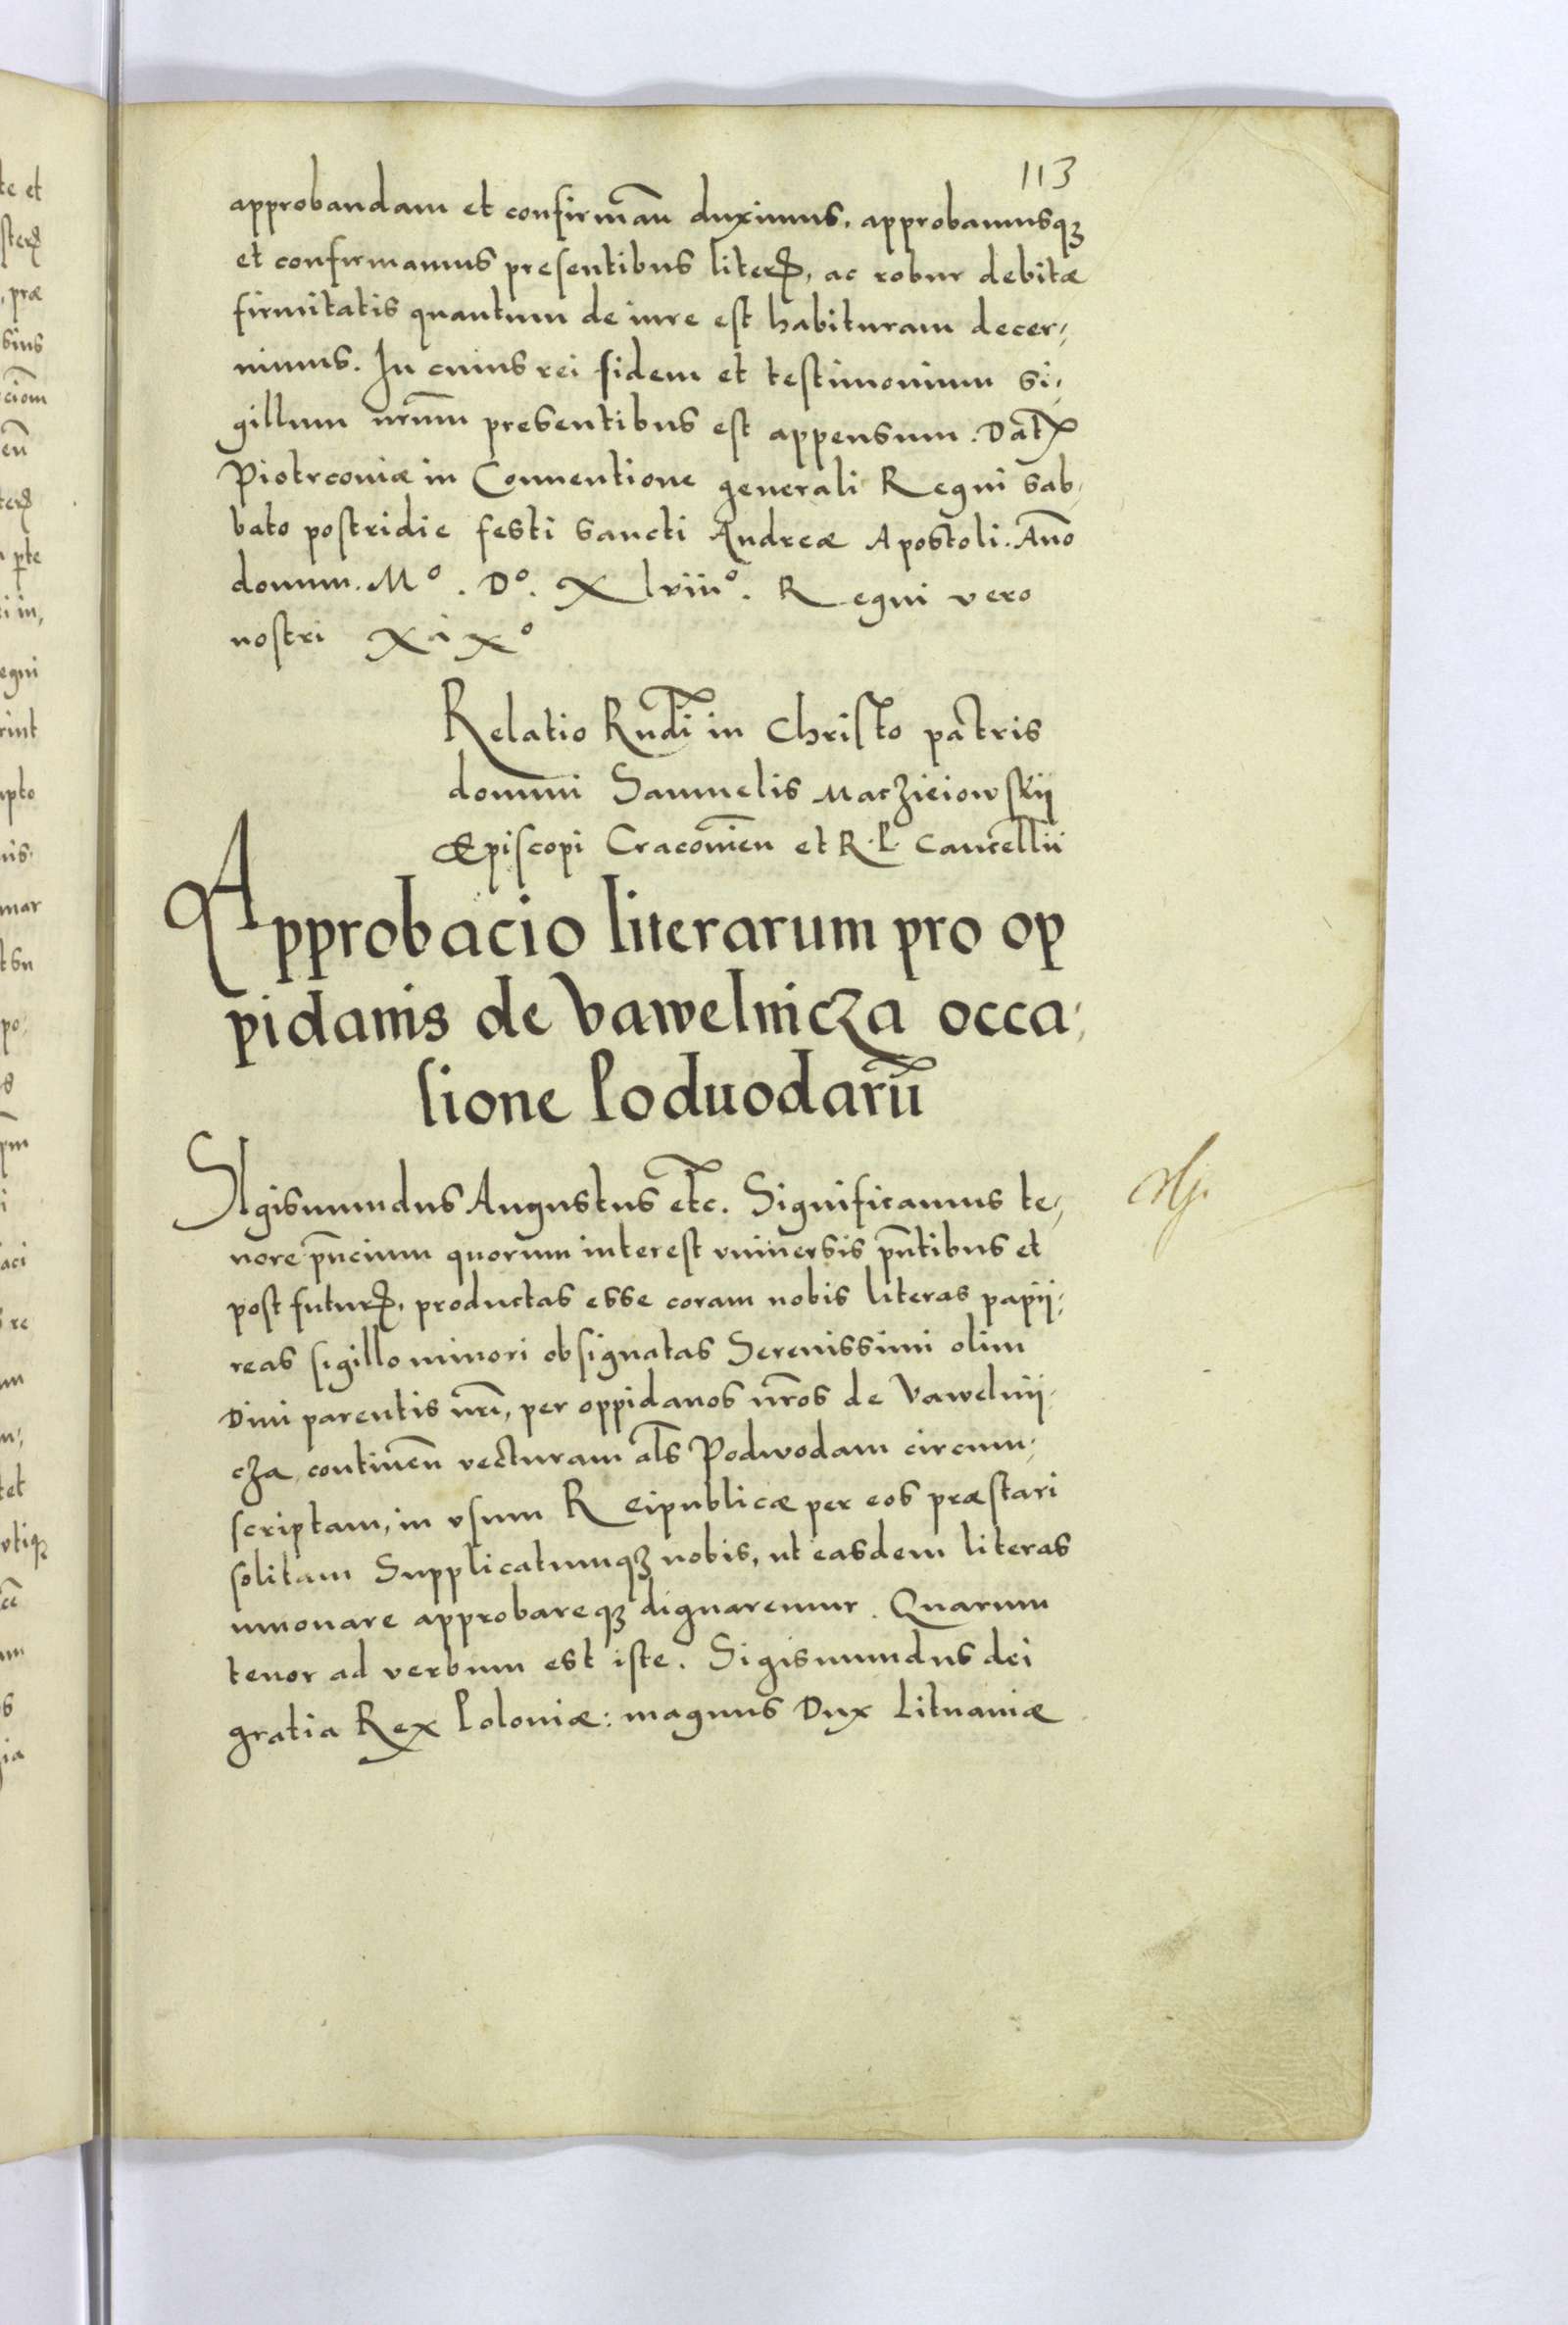 113
approbandam et confirmañ duximus, approbamusqꝫ
et confirmamus presentibus literꝭ, ac robur debitæ
firmitatis quantum de iure est habituram decer,
nimus. In cuius rei fidem et testimonium si,
gillum nrm̄ presentibus est appensum. Datꝭ
Piotrconiæ in Conuentione generali Regni sab,
bato postridie festi sancti Andreæ Apostoli. Anō
domini. Mº. Dº. Xlviiiº. Regni vero
nostri Xixº
Relatio Rndī in Christo patris
domini Samuelis Maczieiowskij
Episcopi Cracouień et R. P. Cancellii
Approbacio literarum pro op
pidanis de Vawelnicza occa,
sione Poduodarū
SIgismundus Augustus etc̄. Significamus te,
nore pn̄cium quorum interest vniuersis pn̄tibus et
post futurꝭ, productas esse coram nobis literas papij,
reas sigillo minori obsignatas Serenissimi olim
Diui parentis nrī, per oppidanos nr̄os de Vawelnij,
cza, continen̄ vecturam al̄s Podwodam circum,
scriptam, in vsum Reipublicæ per eos præstari
solitam Supplicatumqꝫ nobis, ut easdem literas
innouare approbareqꝫ dignaremur. Quarum
tenor ad verbum est iste. Sigismundus dei
gratia Rex Poloniæ: magnus Dux Lituaniæ